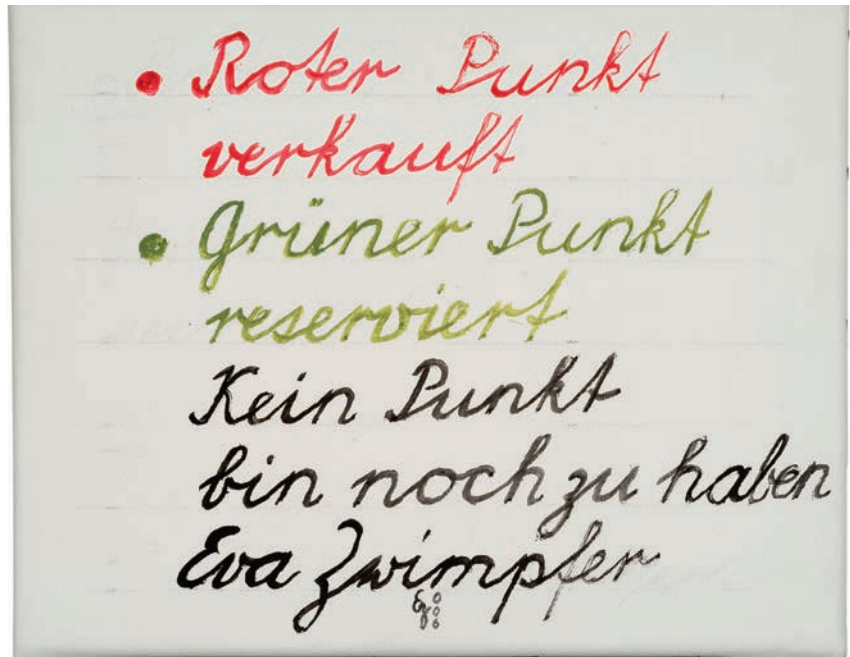 • Roter Punkt
verkauft
• Grüner Punkt
reserviert
Kein Punkt
bin noch zu haben
Eva Zwimpfer